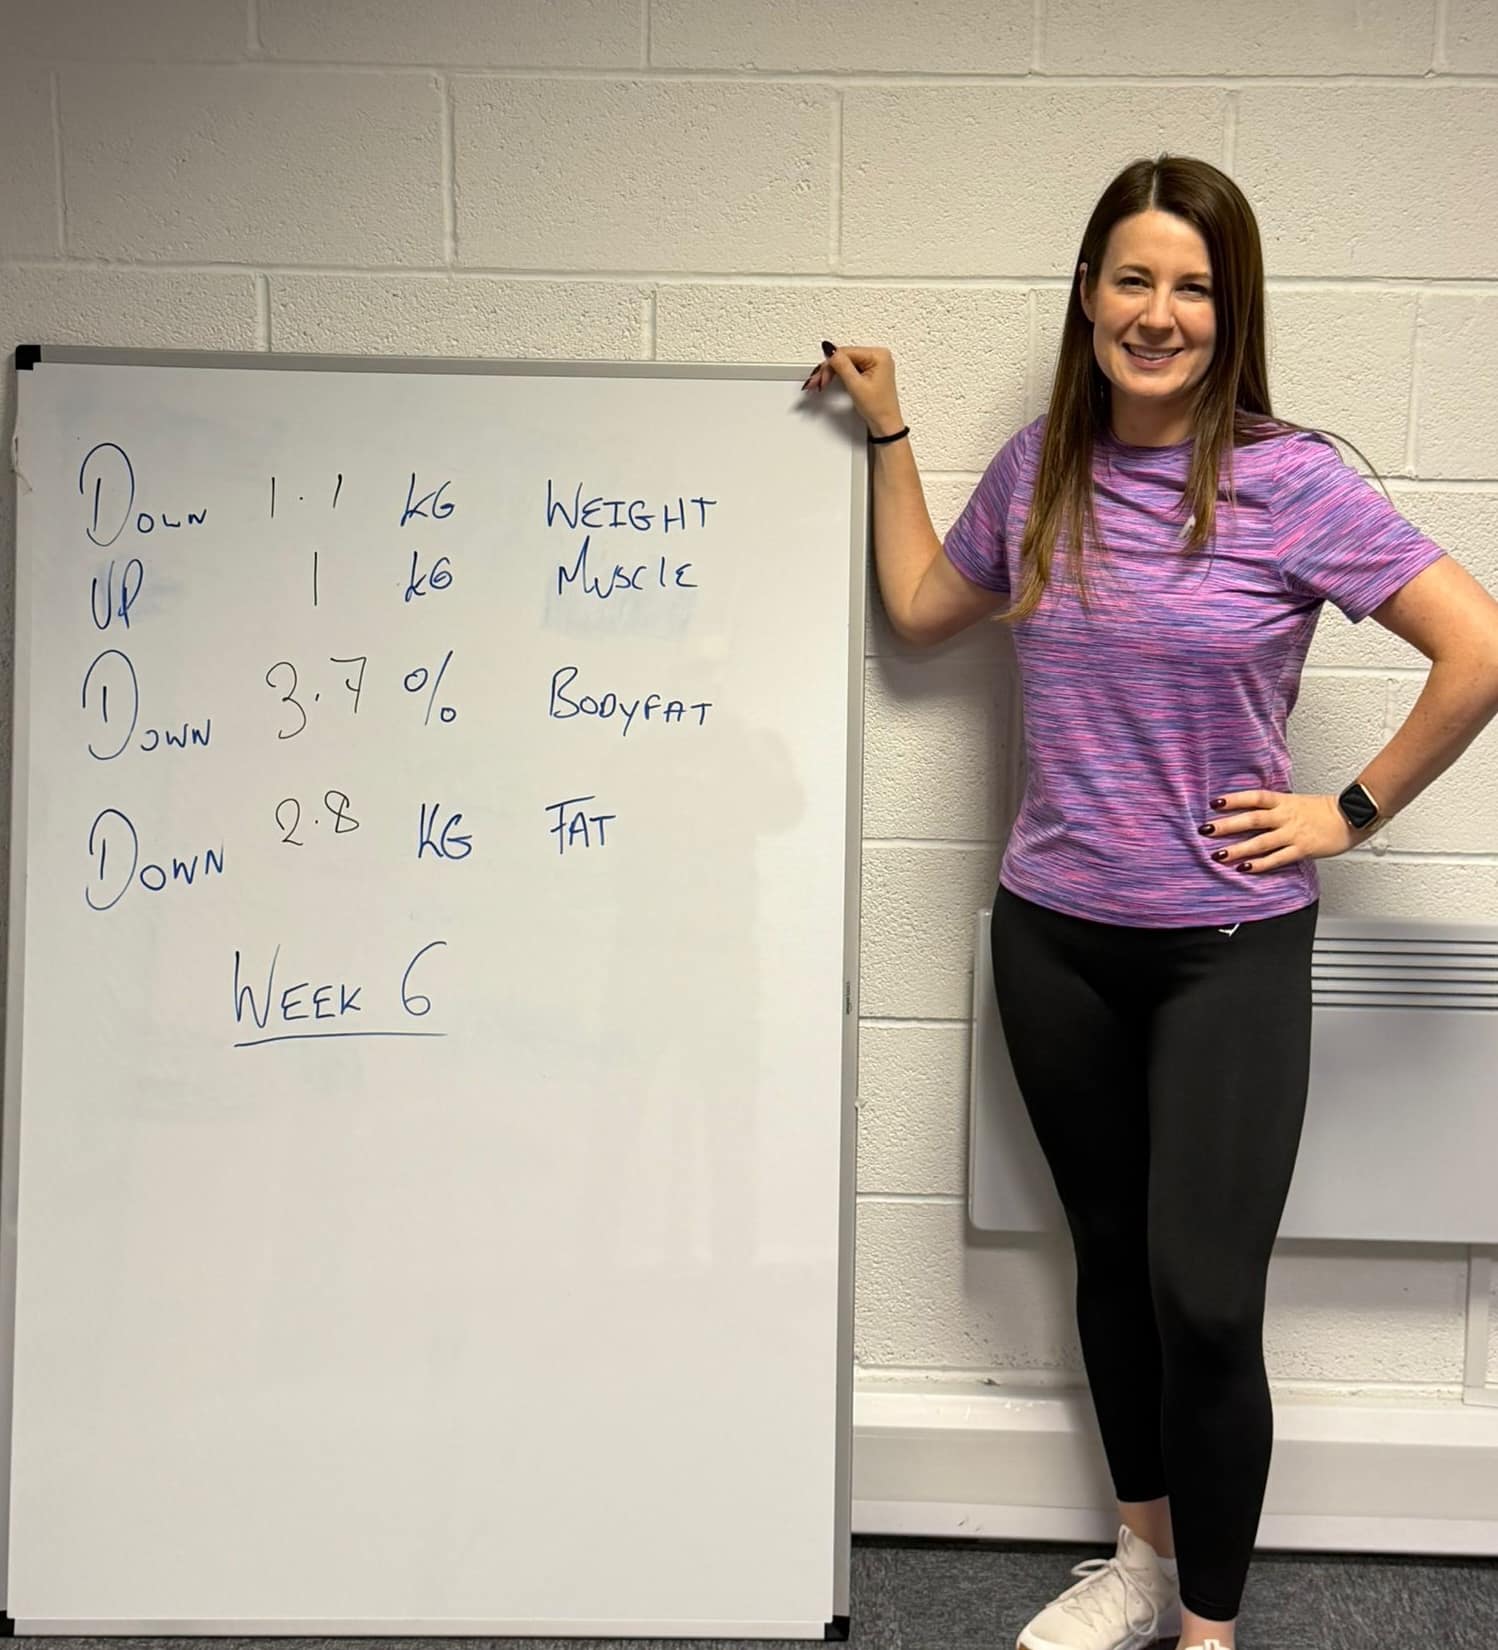 Down 1.1 KG WEIGHT
UP 1 KG MUSCLE
DOWN 3.7 % BODYFAT
DOWN 2.8 KG FAT
WEEK 6